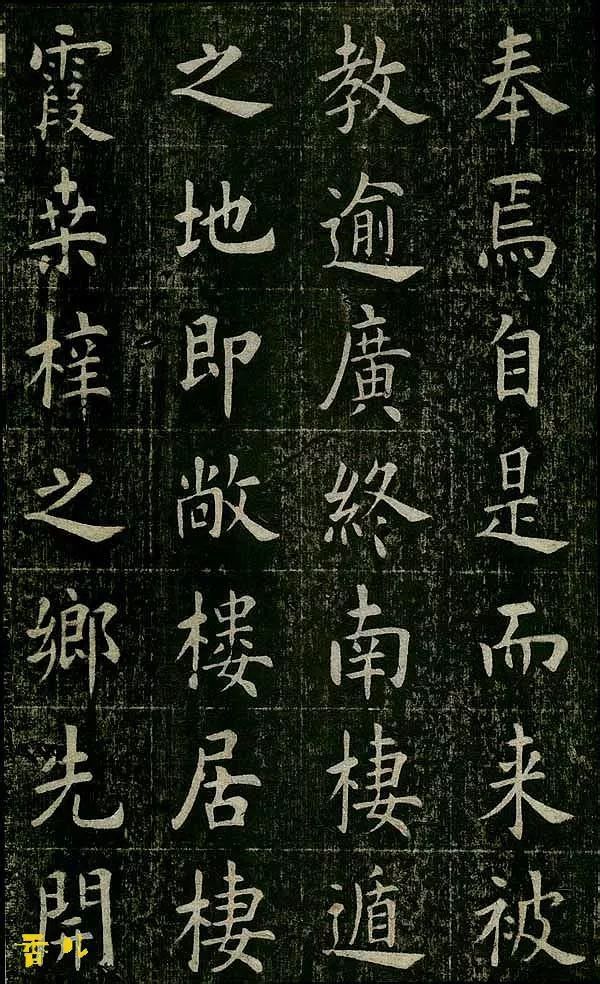 奉焉自是而来被
教逾廣終南棲遁
之地即敞樓居棲
霞桒梓之鄉先開